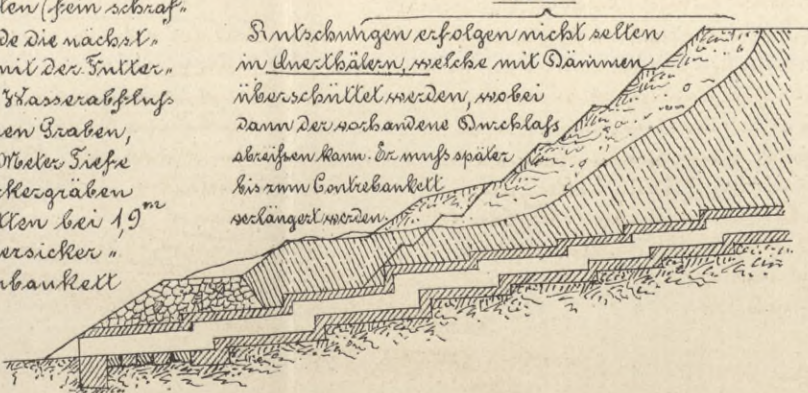 ten (fein schraf„
de die nächst„
mit der Futter„
Wasserabfluß
en Graben,
Meter Tiefe
kergräben
tten bei 1,9 m
ersicker„
nbankett
Rutschungen erfolgen nicht selten
in Querthälern, welche mit Dämmen
überschüttet werden, wobei
dann der vorhandene Durchlaß
abreißen kann. Er muß später
bis zum Contrebankett
verlängert werden.